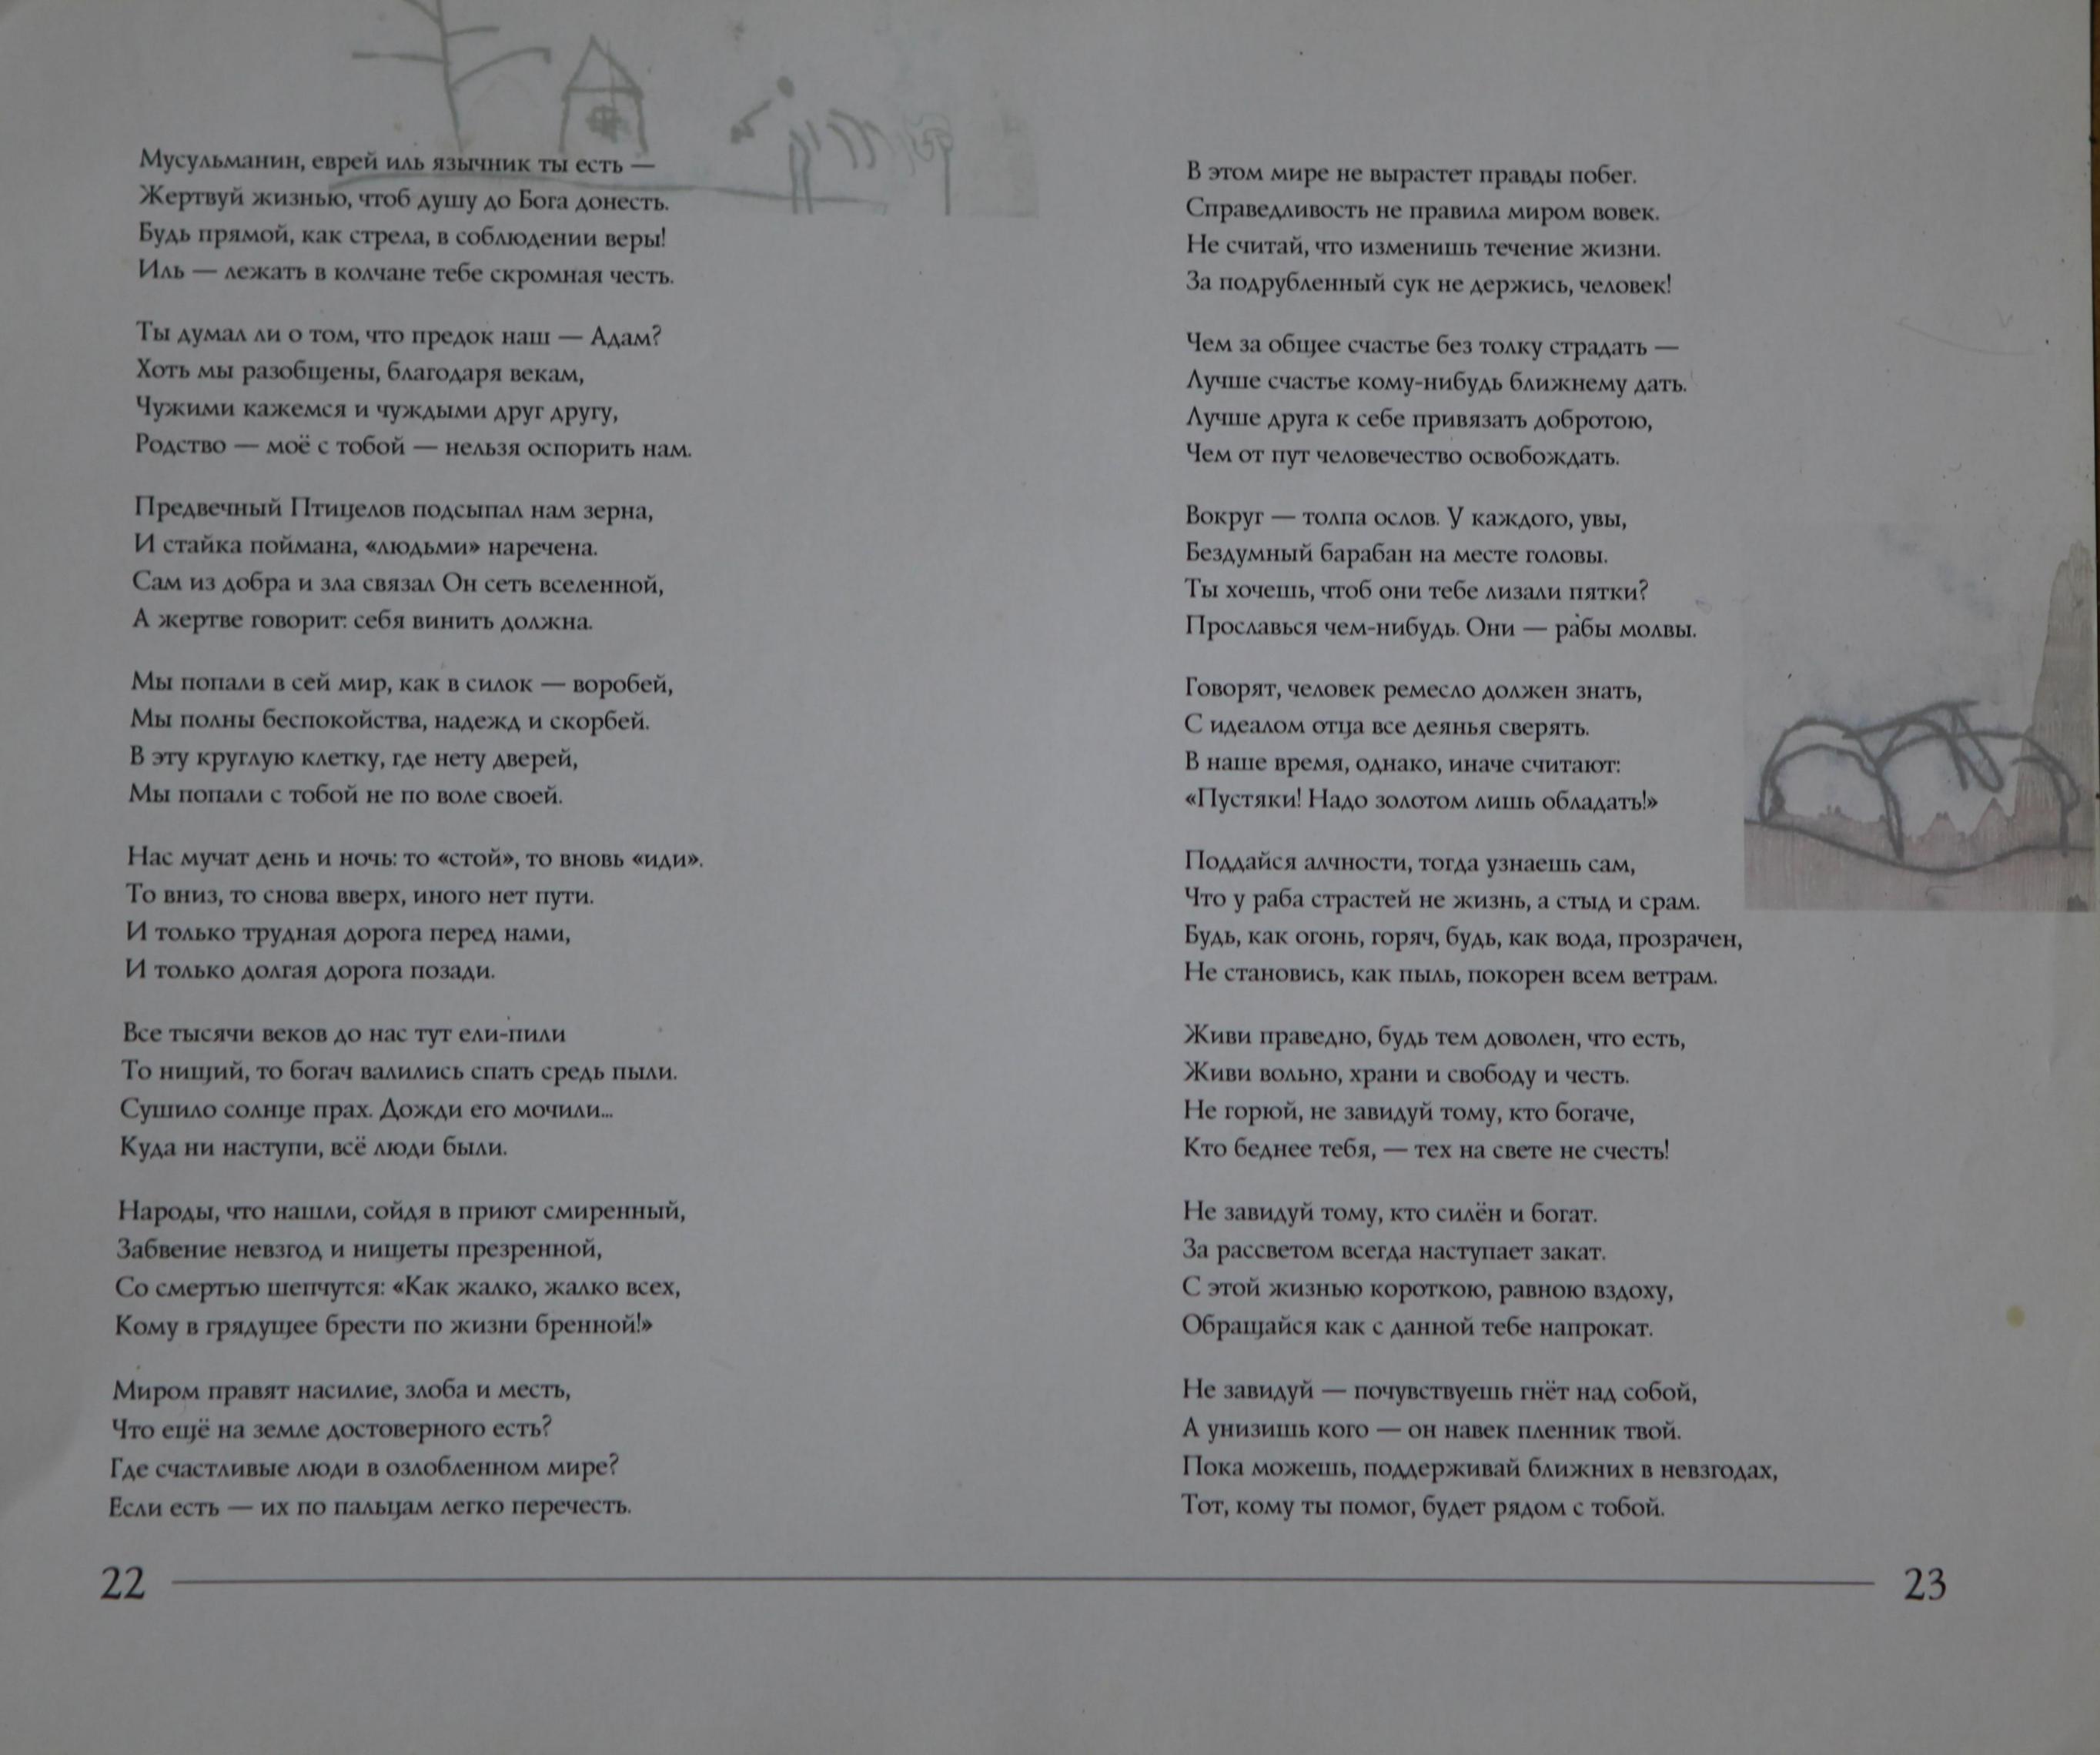 Мусульманин, еврей иль язычник ты есть —
Жертвуй жизнью, чтоб душу до Бога донесть.
Будь прямой, как стрела, в соблюдении веры!
Иль — лежать в колчане тебе скромная честь.
Ты думал ли о том, что предок наш — Адам?
Хоть мы разобщены, благодаря векам,
Чужими кажемся и чуждыми друг другу,
Родство — моё с тобой — нельзя оспорить нам.
Предвечный Птицелов подсыпал нам зерна,
И стайка поймана, «людьми» наречена.
Сам из добра и зла связал Он сеть вселенной,
А жертве говорит: себя винить должна.
Мы попали в сей мир, как в силок — воробей,
Мы полны беспокойства, надежд и скорбей.
В эту круглую клетку, где нету дверей,
Мы попали с тобой не по воле своей.
Нас мучат день и ночь: то «стой», то вновь «иди».
То вниз, то снова вверх, иного нет пути.
И только трудная дорога перед нами,
И только долгая дорога позади.
Все тысячи веков до нас тут ели-пили
То нищий, то богач валились спать средь пыли.
Сушило солнце прах. Дожди его мочили...
Куда ни наступи, всё люди были.
Народы, что нашли, сойдя в приют смиренный,
Забвение невзгод и нищеты презренной,
Со смертью шепчутся: «Как жалко, жалко всех,
Кому в грядущее брести по жизни бренной!»
Миром правят насилие, злоба и месть,
Что ещё на земле достоверного есть?
Где счастливые люди в озлобленном мире?
Если есть — их по пальцам легко перечесть.
22
В этом мире не вырастет правды побег.
Справедливость не правила миром вовек.
Не считай, что изменишь течение жизни.
За подрубленный сук не держись, человек!
Чем за общее счастье без толку страдать —
Лучше счастье кому-нибудь ближнему дать.
Лучше друга к себе привязать добротою,
Чем от пут человечество освобождать.
Вокруг — толпа ослов. У каждого, увы,
Бездумный барабан на месте головы.
Ты хочешь, чтоб они тебе лизали пятки?
Прославься чем-нибудь. Они — рабы молвы.
Говорят, человек ремесло должен знать,
С идеалом отца все деянья сверять.
В наше время, однако, иначе считают:
«Пустяки! Надо золотом лишь обладать!»
Поддайся алчности, тогда узнаешь сам,
Что у раба страстей не жизнь, а стыд и срам.
Будь, как огонь, горяч, будь, как вода, прозрачен,
Не становись, как пыль, покорен всем ветрам.
Живи праведно, будь тем доволен, что есть,
Живи вольно, храни и свободу и честь.
Не горюй, не завидуй тому, кто богаче,
Кто беднее тебя, — тех на свете не счесть!
Не завидуй тому, кто силён и богат.
За рассветом всегда наступает закат.
С этой жизнью короткою, равною вздоху,
Обращайся как с данной тебе напрокат.
Не завидуй — почувствуешь гнёт над собой,
А унизишь кого — он навек пленник твой.
Пока можешь, поддерживай ближних в невзгодах,
Тот, кому ты помог, будет рядом с тобой.
23